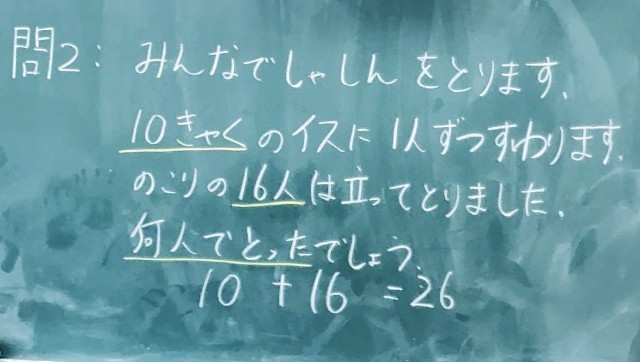 問2: みんなでしゃしんをとります、
10きゃくのイスに1人ずつすわります、
のこりの16人は立ってとりました、
何人でとったでしょう、
10 + 16 = 26